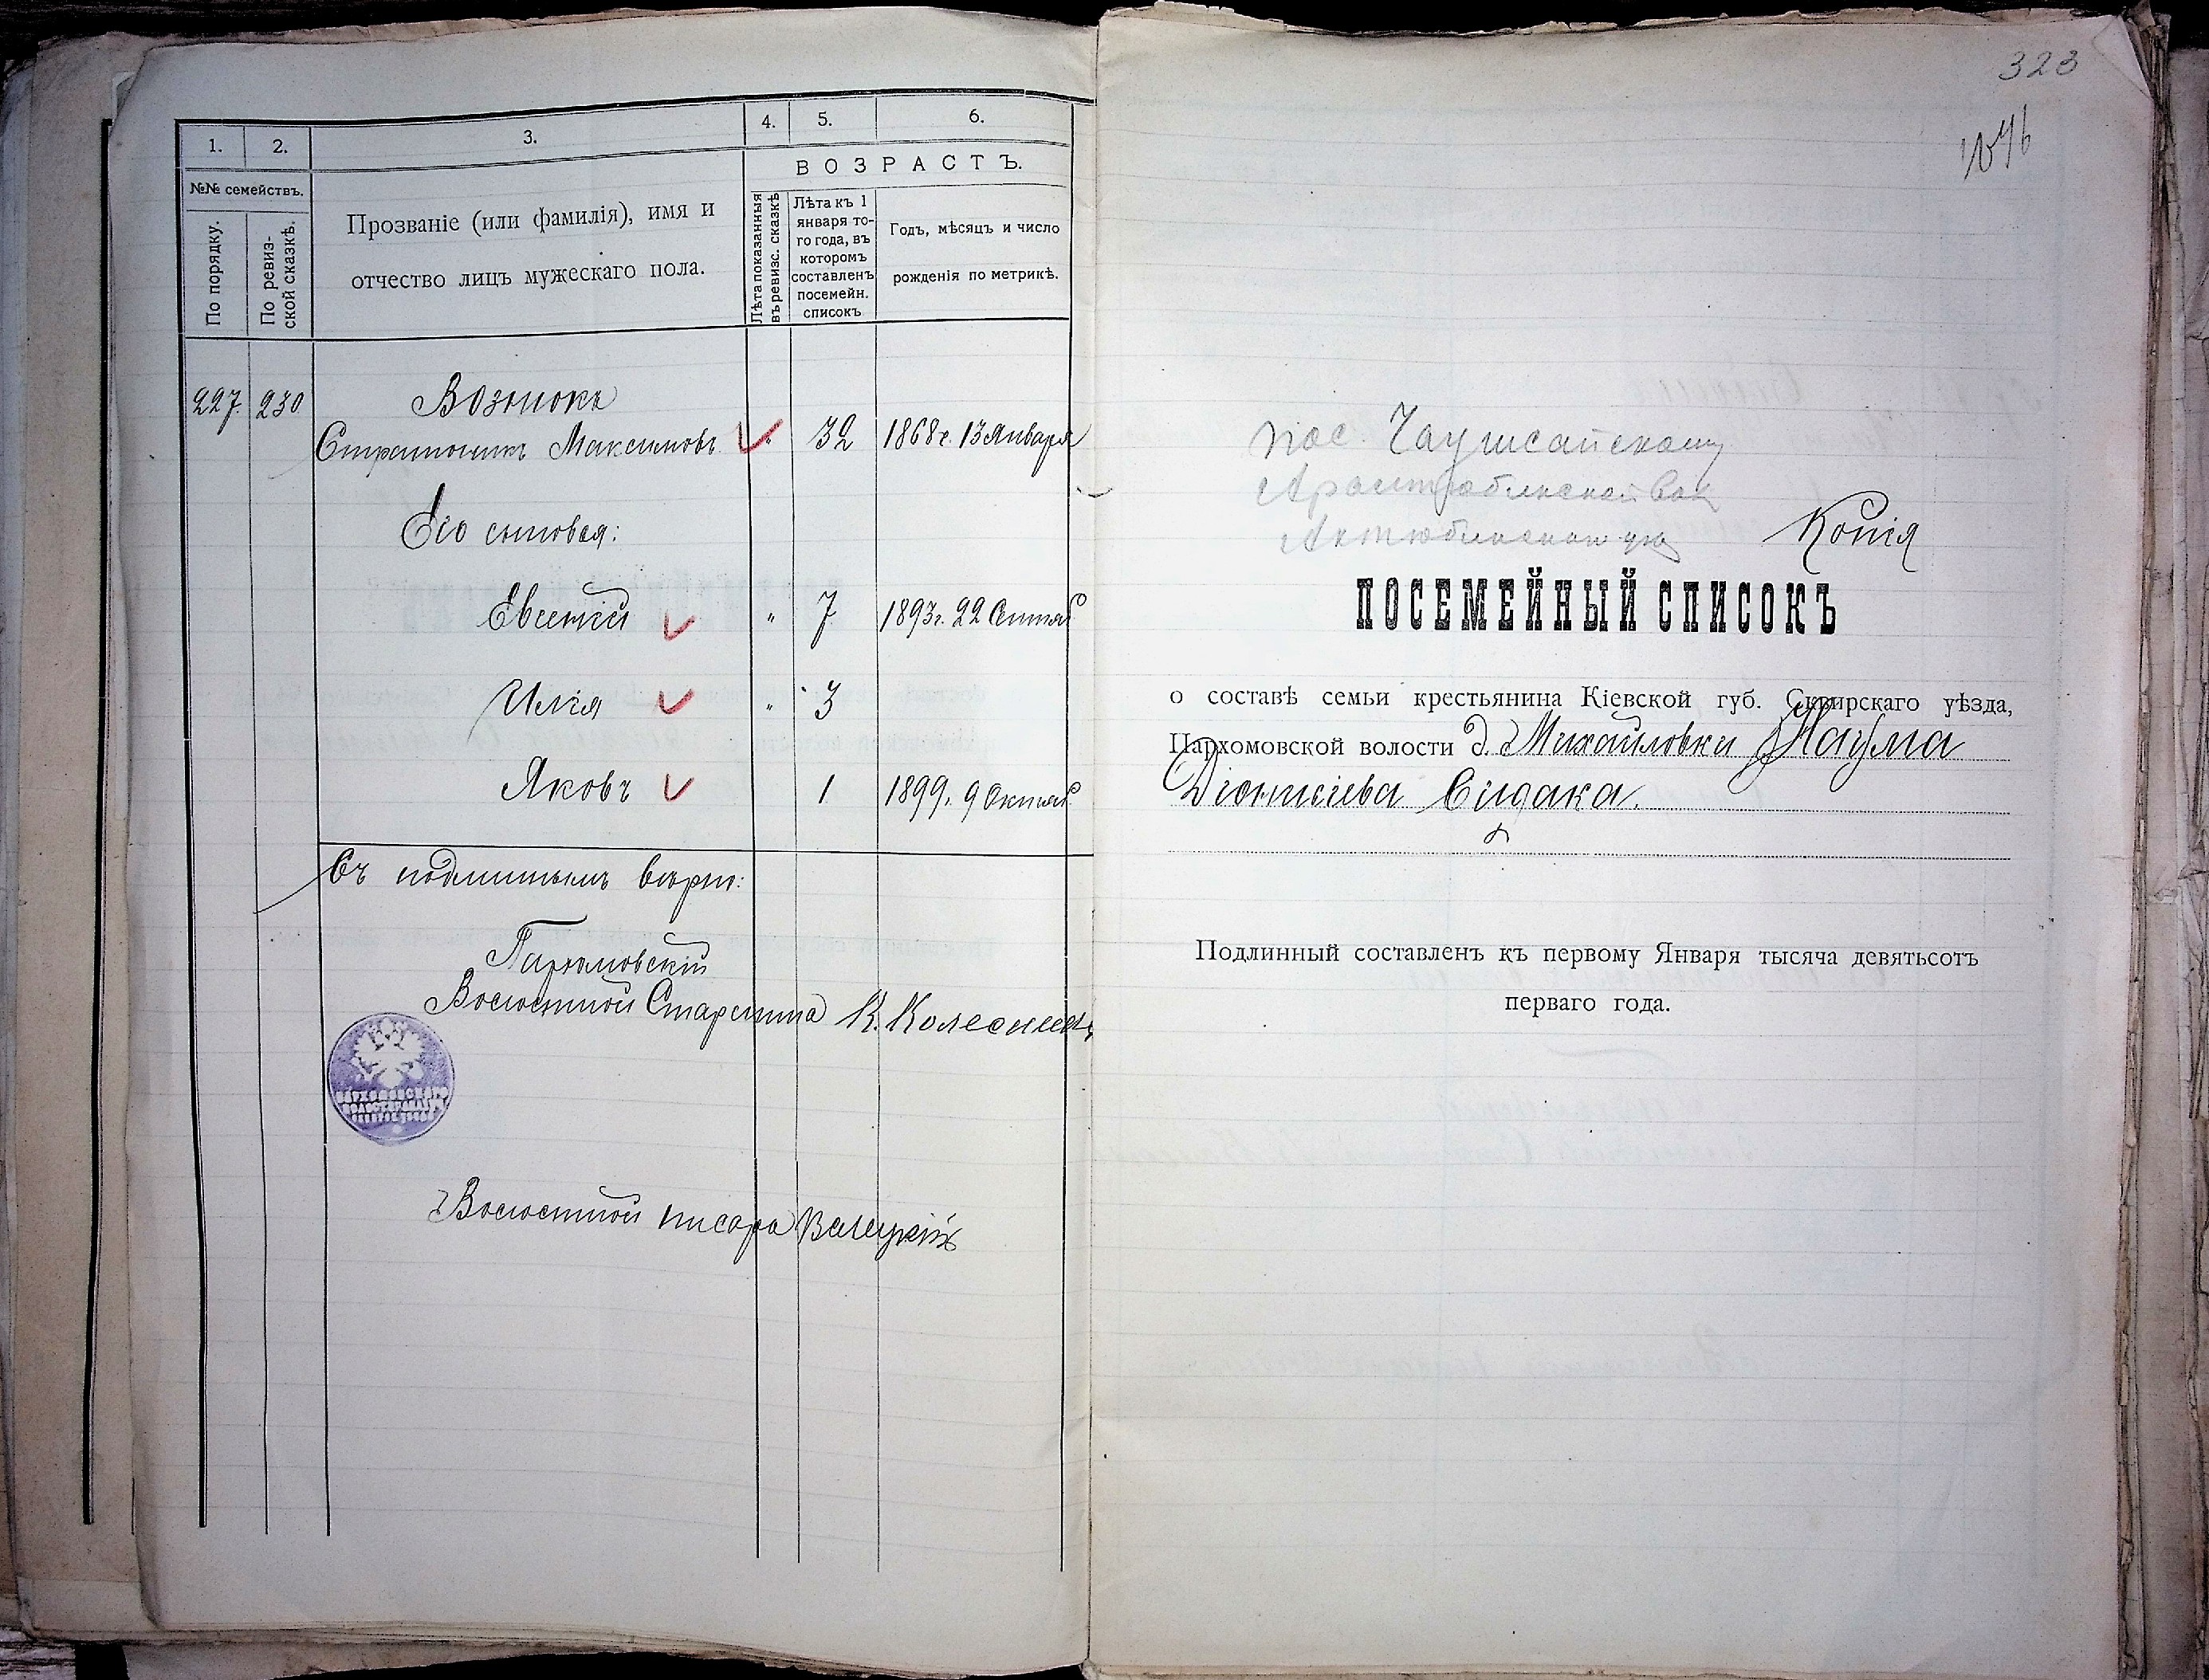 1. 2. 3. 4. 5. 6.
№№ семействъ.
По порядку.
По ревиз-
ской сказкѣ.
Прозваніе (или фамилія), имя и
отчество лицъ мужескаго пола.
ВОЗРАСТЪ.
Лѣта показанныя
въ ревизс. сказкѣ
Лѣта къ 1
января то-
го года, въ
которомъ
составленъ
посемейн.
списокъ
Годъ, мѣсяцъ и число
рожденія по метрикѣ.
227. 230 Вознюкъ
Стратоникъ Максимовъ " 32 1868 г. 13 Января
Его сыновья:
Евсевій " 7 1893 г. 22 Сентяб
Илія " 3
Яковъ 1 1899. 9 Октяб
Съ подлиннымъ вѣрно:
Пархомовскій
Волостной Старшина К. Колесник
ПАРХОМОВСКАГО
Волостной писарь
323
1046
пос. Чаушсайскому
Актюбинскаго уѣз
Копія
ПОСЕМЕЙНЫЙ СПИСОКЪ
о составѣ семьи крестьянина Кіевской губ. Сквирскаго уѣзда,
Пархомовской волости д. Михайловки Наума
Діонисіева Сидака.
Подлинный составленъ къ первому Января тысяча девятьсотъ
перваго года.